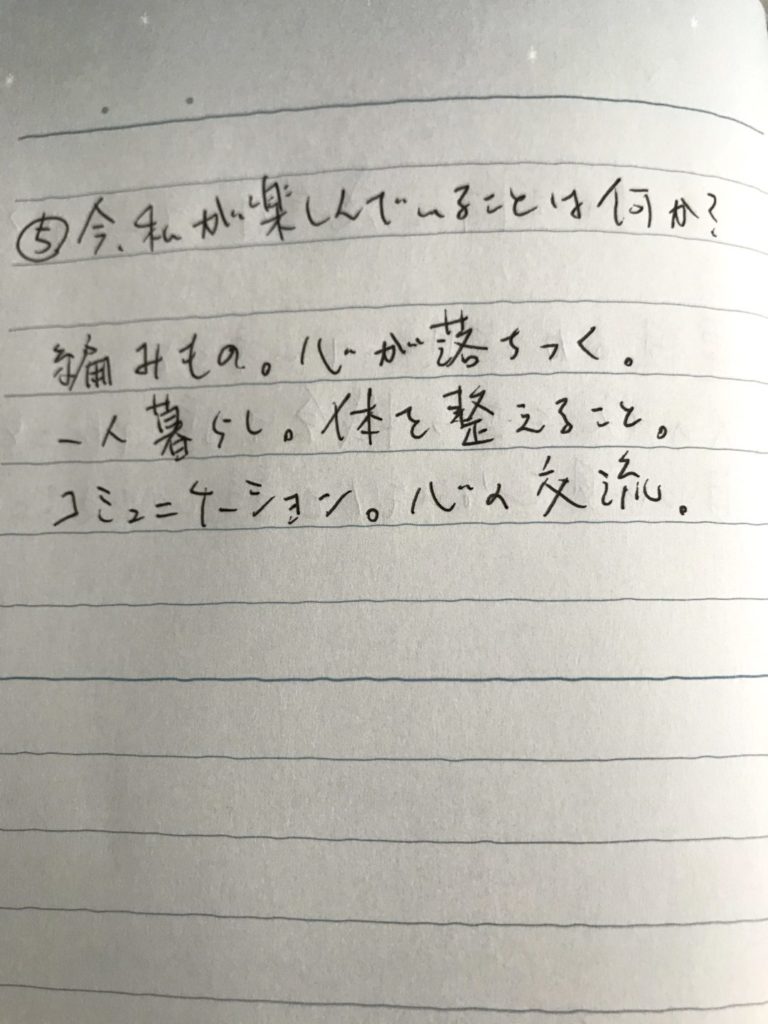 ⑤今、私が楽しんでいることは何か?
編みもの。心が落ちつく。
一人暮らし。体を整えること。
コミュニケーション。心の交流。